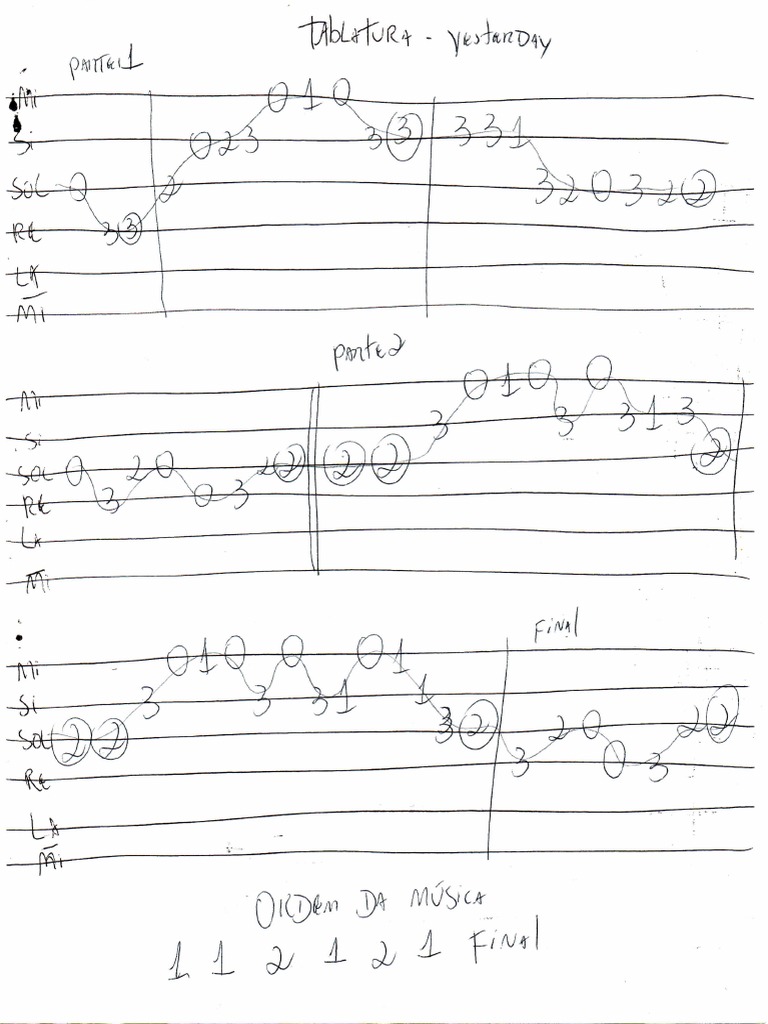 TABLATURA - YESTERDAY
PARTE 1
Mi 0 1 0
Si 0 2 3 3 3 3 3 1
SOL 0 2 3 2 0 3 2 2
RE 3 3
LA
Mi
PARTE 2
Mi 0 1 0 0
Si 3 3 3 1 3
SOL 0 2 0 2 2 2 2 2
RE 3 0 3
LA
Mi
FINAL
Mi 0 1 0 0 0 1
Si 3 3 3 1 1
SOL 2 2 3 2 2 0 2 2
RE 3 0 3
LA
Mi
ORDEM DA MÚSICA
1 1 2 1 2 1 FINAL